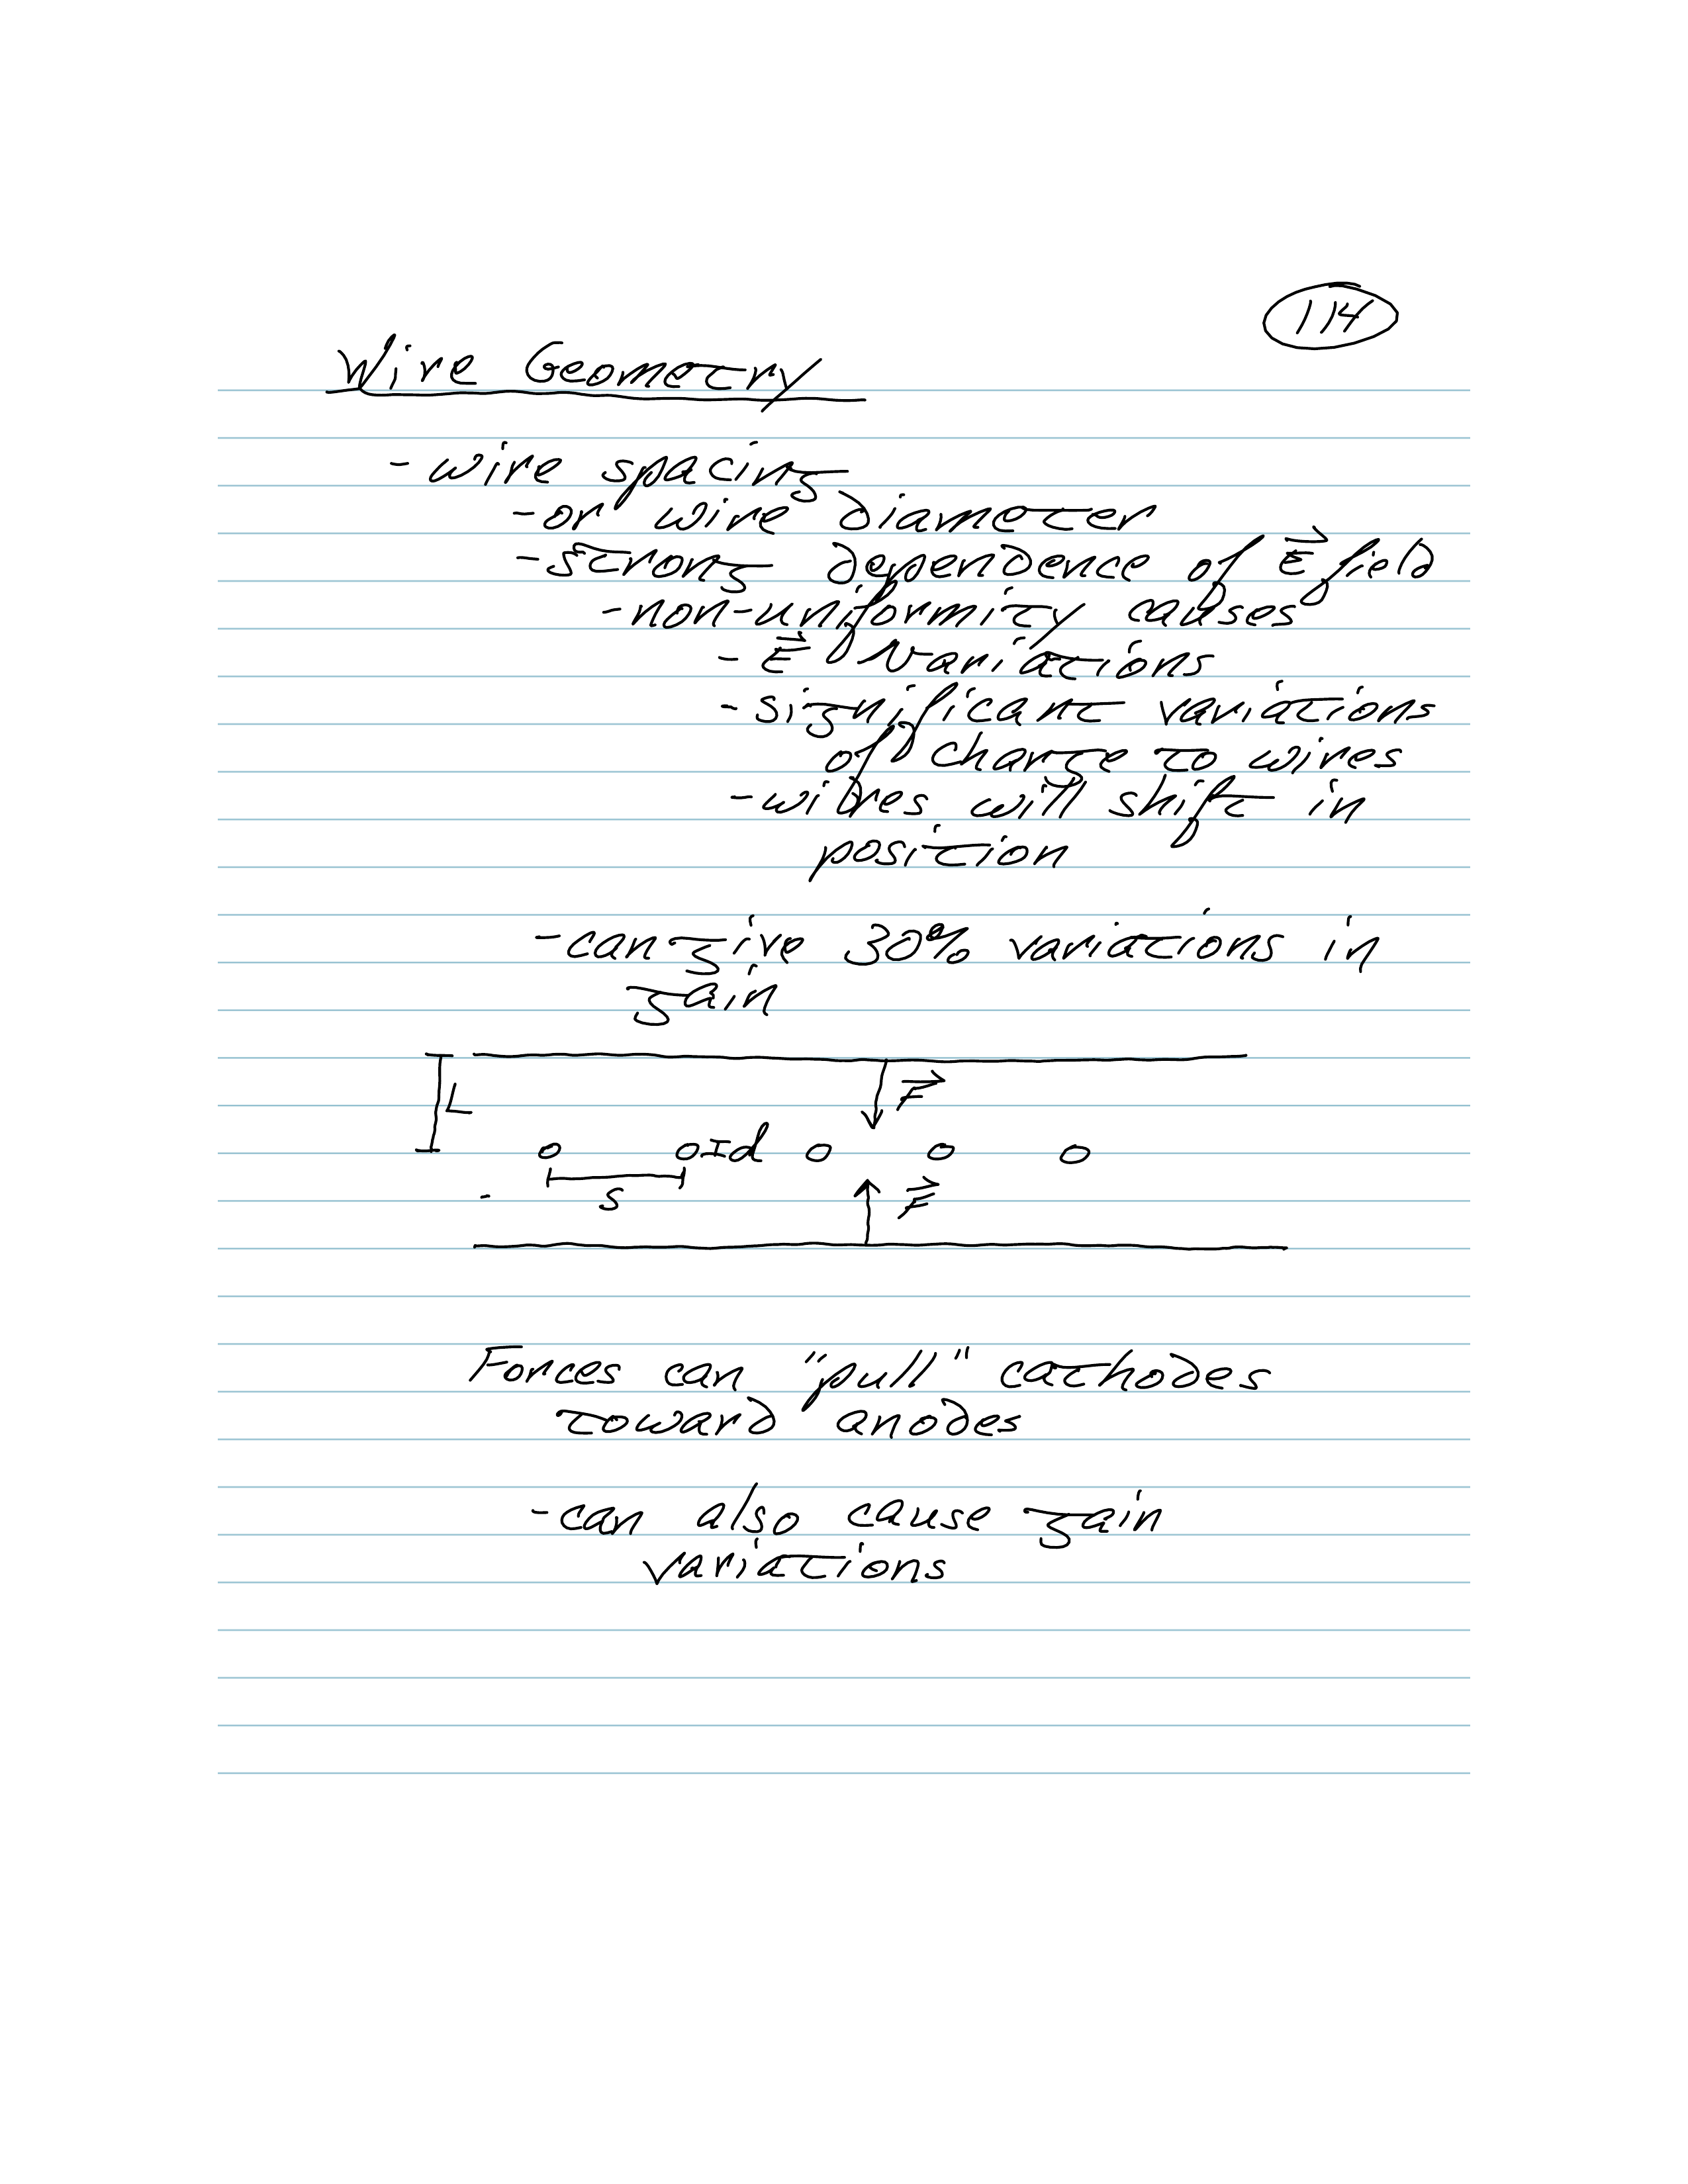 114
Wire Geometry
- wire spacing
- or wire diameter
- strong dependence of E field
- non-uniformity causes
- E variations
- significant variations
of charge to wires
- wires will shift in
position
- can give 30% variations in
gain
L
F
d
S
F
Forces can "pull" cathodes
toward anodes
- can also cause gain
variations